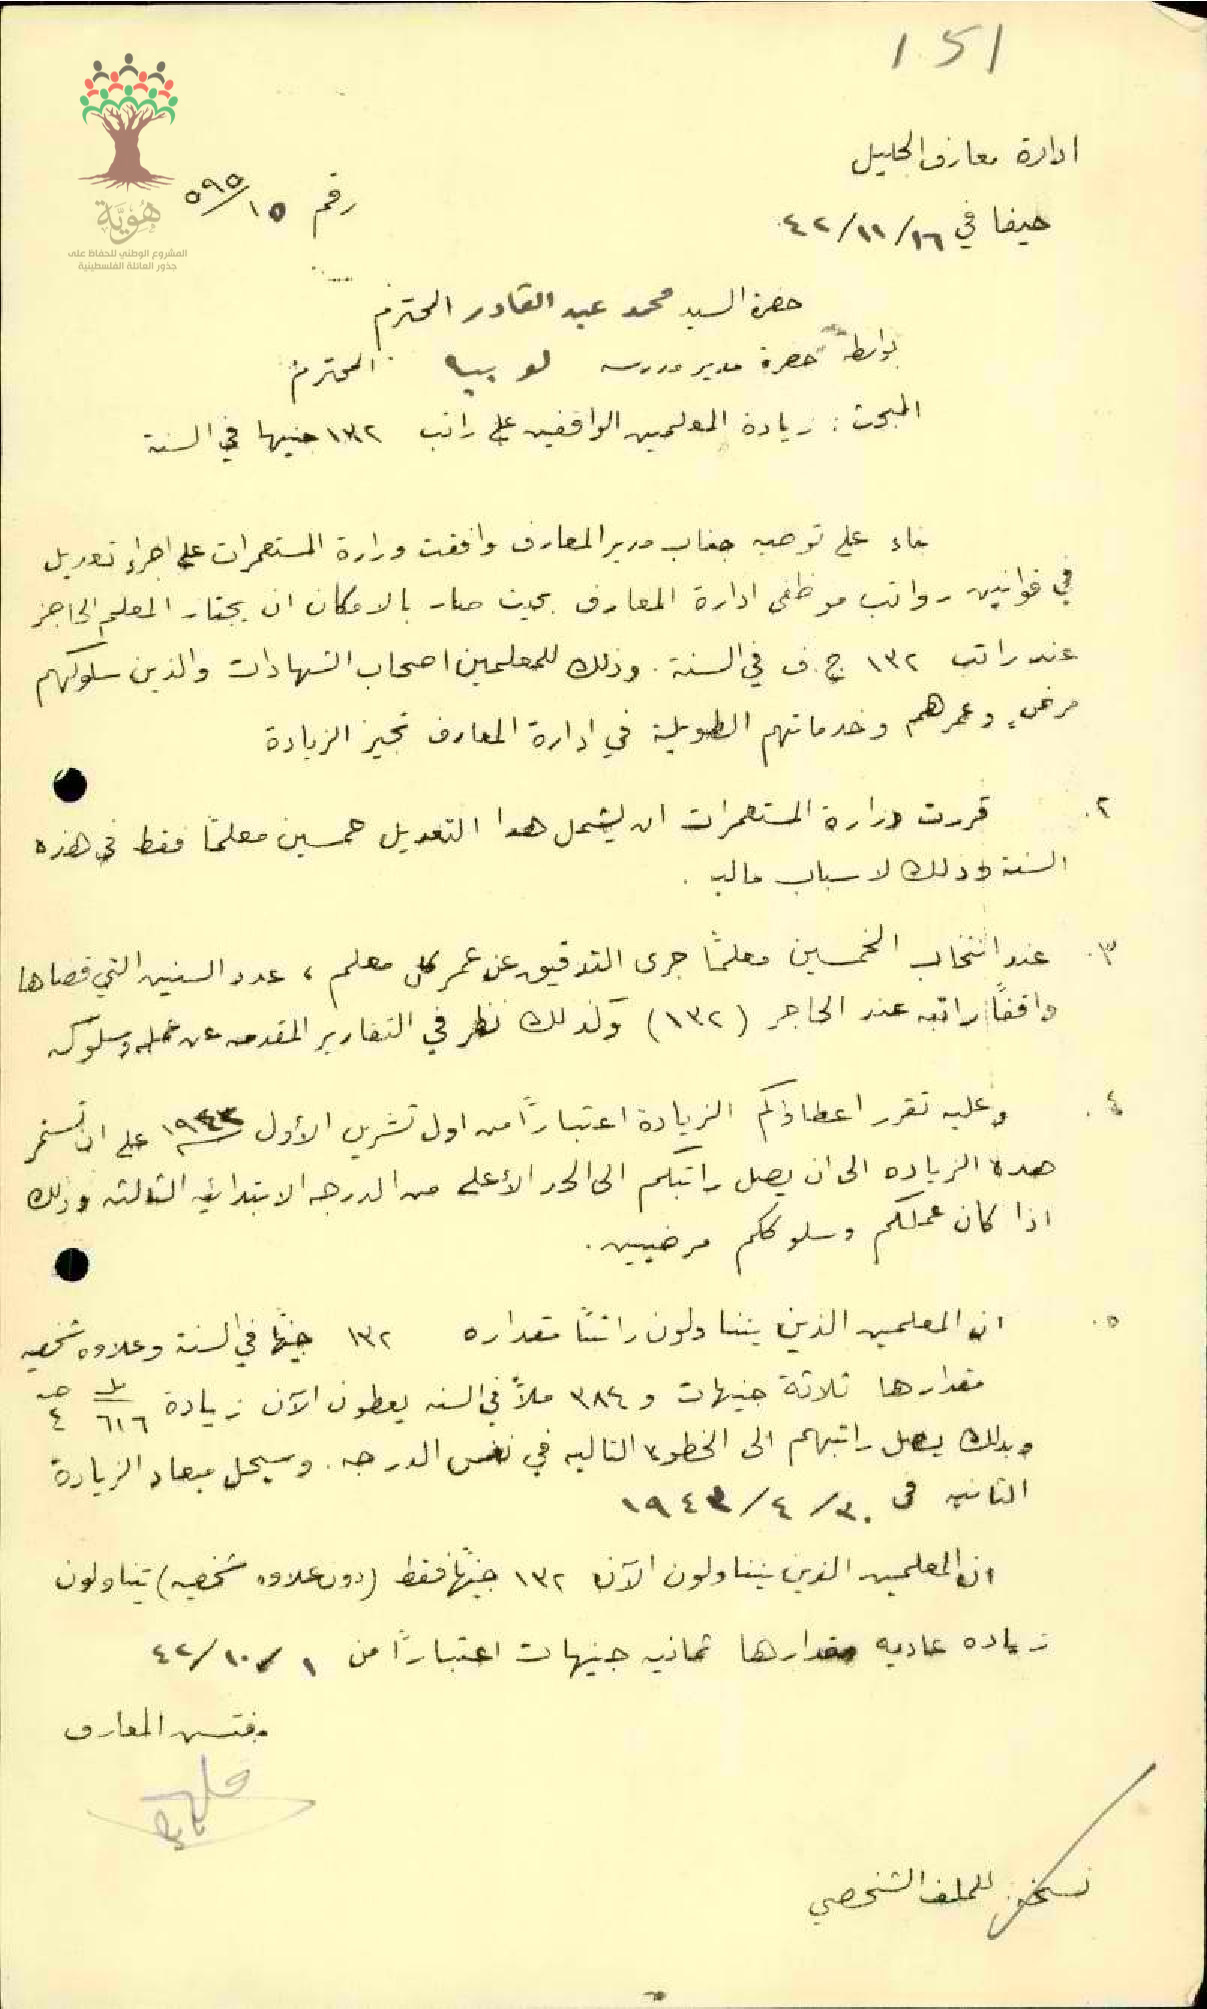 151
ادارة معارف الجليل
حيفا في ١٦/١١/٤٢
رقم ٥٩٥/١٥
هُوِيَّة
المشروع الوطني للحفاظ على
جذور العائلة الفلسطينية
حضرة السيد محمد عبد القادر المحترم
بواسطة حضرة مدير مدرسه لوبيا المحترم
المبحث : زيادة المعلمين الواقفين على راتب ١٣٢ جنيها في السنة
بناء على توصيه جناب مدير المعارف وافقت وزارة المستعمرات على اجراء تعديل
في قوانين رواتب موظفى ادارة المعارف بحيث صار بالامكان ان يجتاز المعلم الحاجز
عند راتب ١٣٢ ج.ف في السنة . وذلك للمعلمين اصحاب الشهادات والذين سلوكهم
مرضي وعمرهم وخدماتهم الطويلة في ادارة المعارف تجيز الزيادة
٢. قررت وزارة المستعمرات ان يشمل هذا التعديل خمسين معلمًا فقط في هذه
السنة وذلك لاسباب ماليه .
٣. عند انتخاب الخمسين معلمًا جرى التدقيق عن عمر كل معلم ، عدد السنين التي قضاها
واقفًا راتبه عند الحاجز (١٣٢) وكذلك نظر في التقارير المقدمه عن عمله وسلوكه
٤. وعليه تقرر اعطاؤكم الزيادة اعتبارًا من اول تشرين الأول على ان تستمر
هذه الزياده الى ان يصل راتبكم الى الحد الأعلى من الدرجه الابتدائيه الثالثه وذلك
اذا كان عملكم وسلوككم مرضيين .
٥. ان المعلمين الذين يتناولون راتبًا مقداره ١٣٢ جنيهًا في السنة وعلاوه شخصيه
مقدارها ثلاثة جنيهات و ٣٨٤ ملاً في السنه يعطون الآن زيادة ٦١٦ مل ٤ جنيه
وبذلك يصل راتبهم الى الخطوه التاليه في نفس الدرجه . وسيحل ميعاد الزيادة
الثانيه في ٣٠/٤/١٩٤٣
ان المعلمين الذين يتناولون الآن ١٣٢ جنيهًا فقط (دون علاوه شخصيه) يتناولون
زياده عاديه مقدارها ثمانيه جنيهات اعتبارًا من ١/١٠/٤٢
مفتش المعارف
نسخة : للملف الشخصي